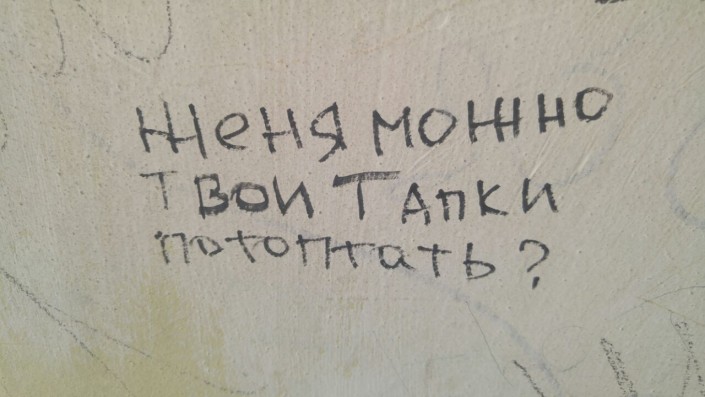 Женя можно
твои Тапки
потоптать?